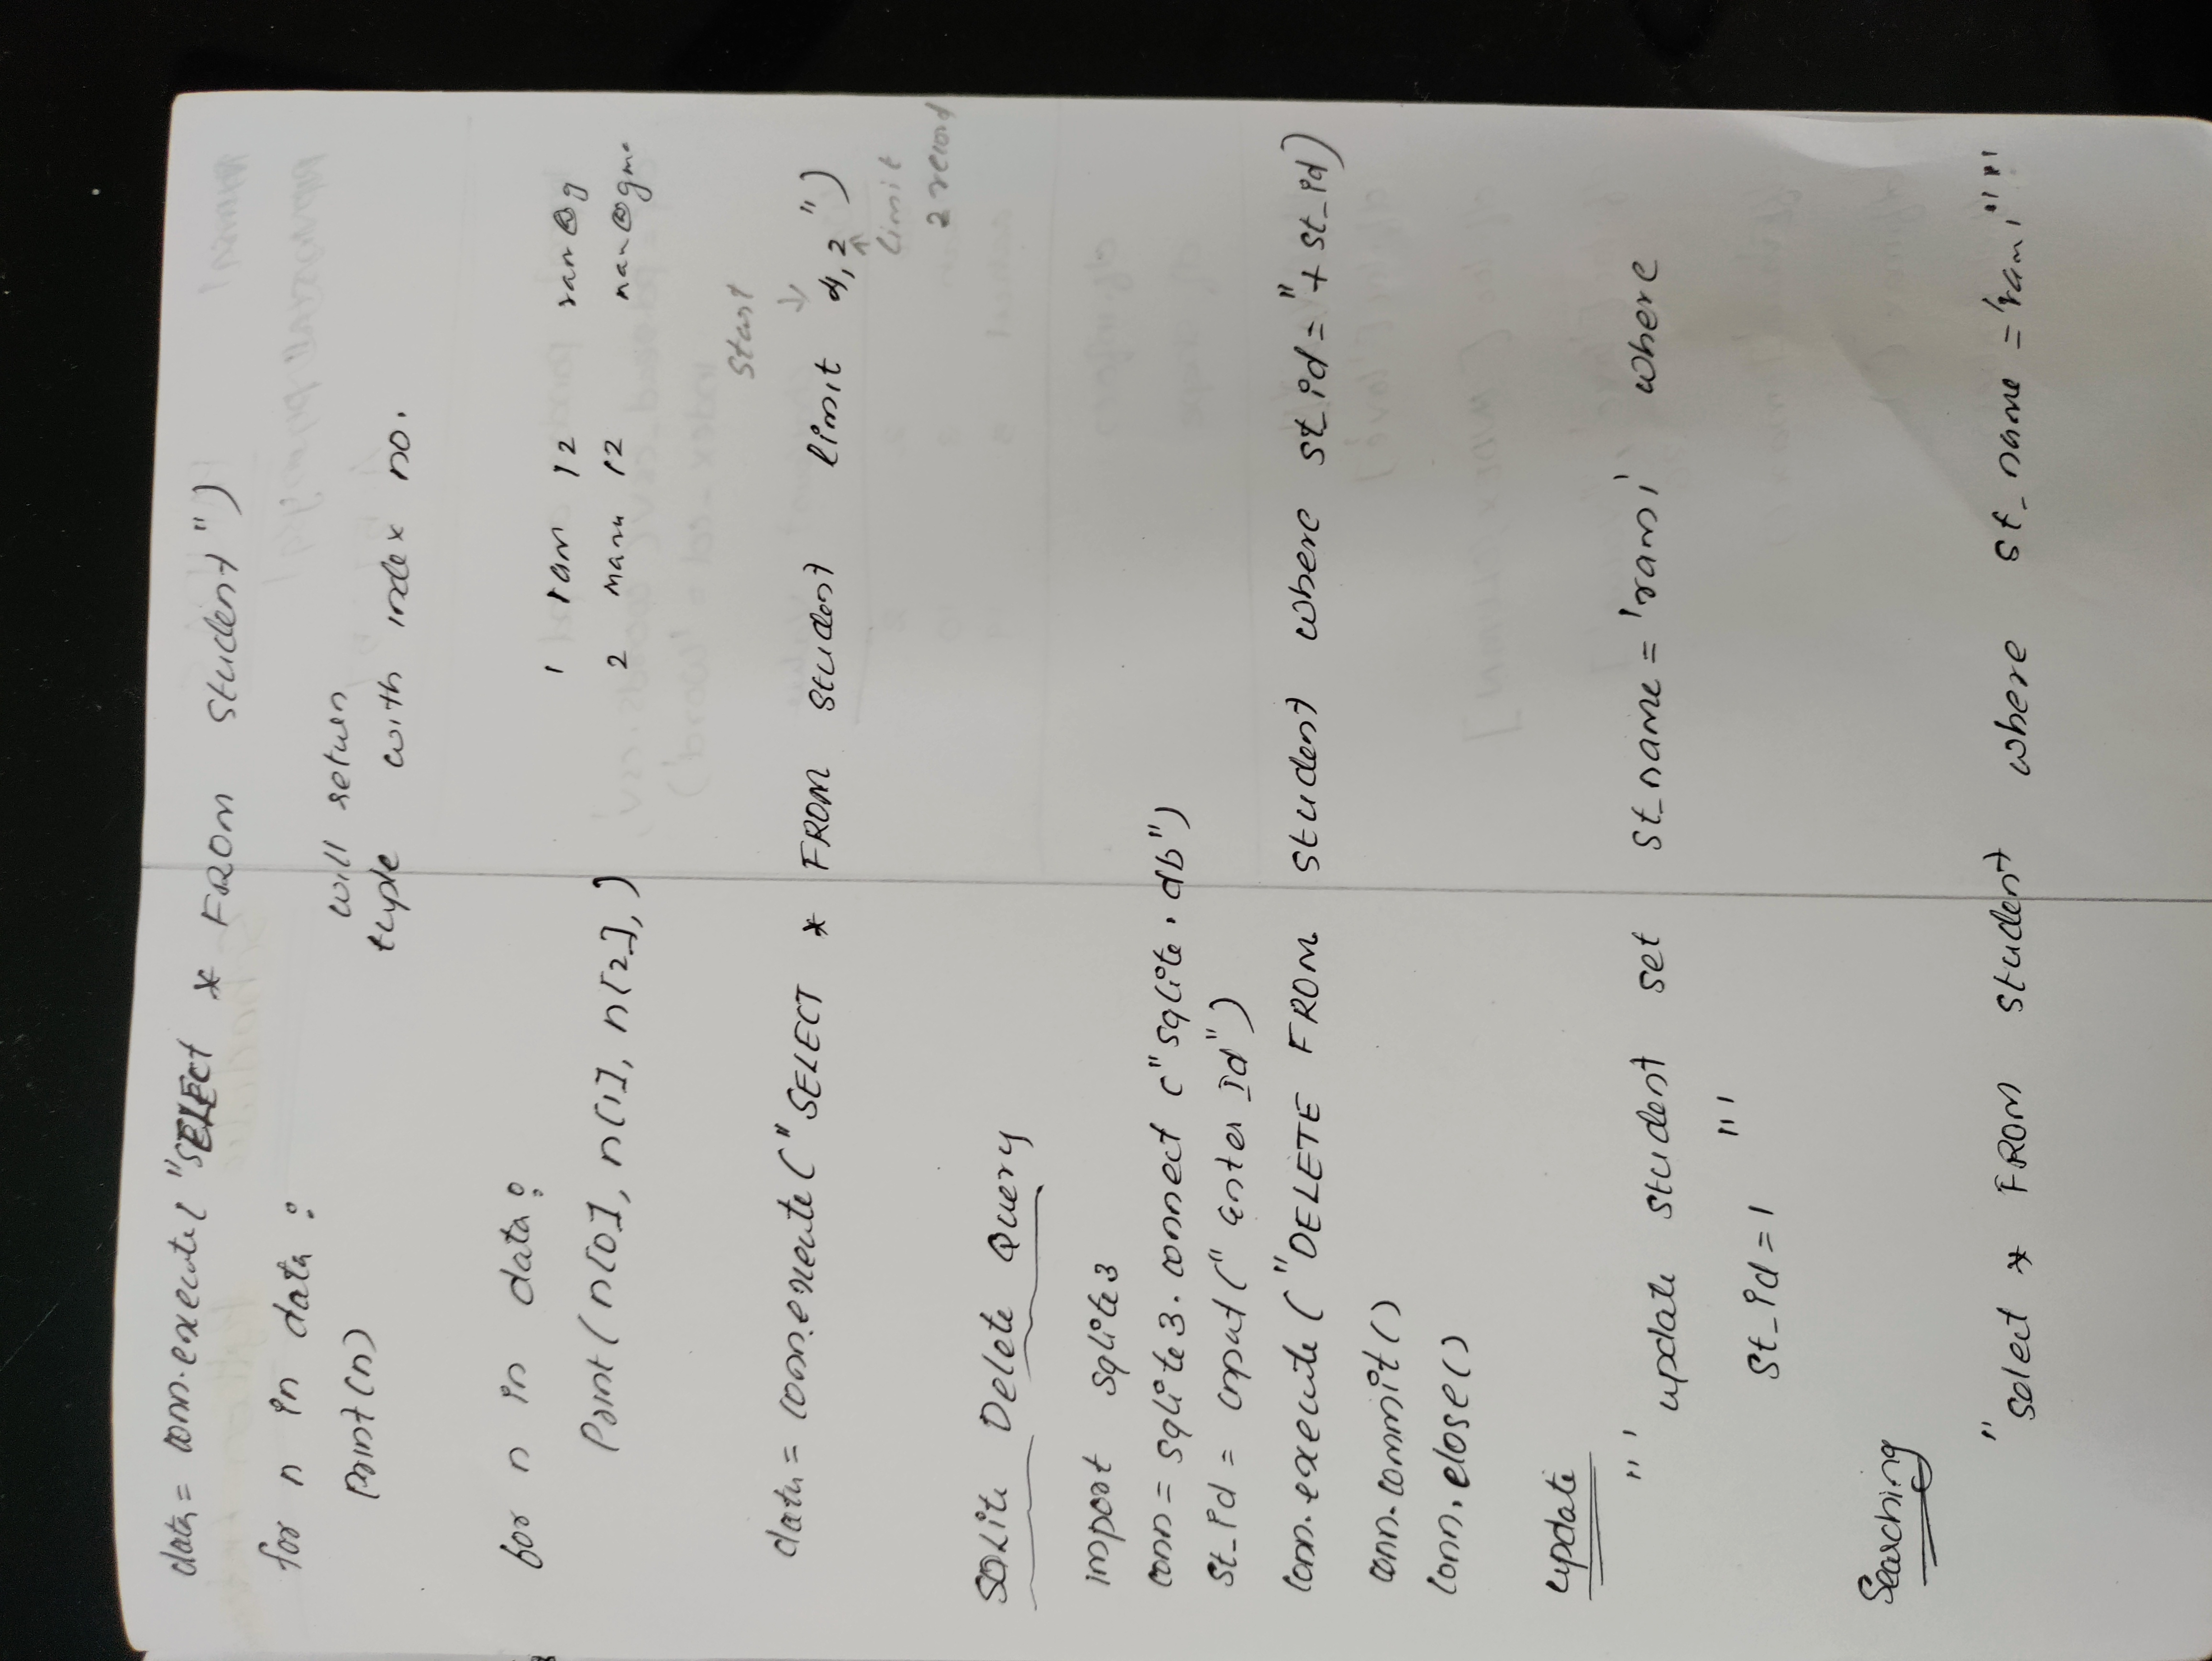 data = conn.execute( "SELECT * FROM student")
for n in data :
print(n)
will return
tuple with index no.
for n in data :
print( n[0], n[1], n[2], )
1 ram 12 ram@g
2 manu 12 man@gm
start
↓
data = conn.execute("SELECT * FROM student limit 4,2")
↑
limit
2 record
SQLite Delete Query
import sqlite3
conn = sqlite3.connect ("sqlite.db")
st_id = input(" enter Id")
conn.execute ("DELETE FROM student where st_id = "+ st_id)
conn.commit()
conn.close()
update
"' update student set st_name = 'ram' where
st_id = 1 "'
Searching
"select * FROM student where st_name = 'ram' "'"